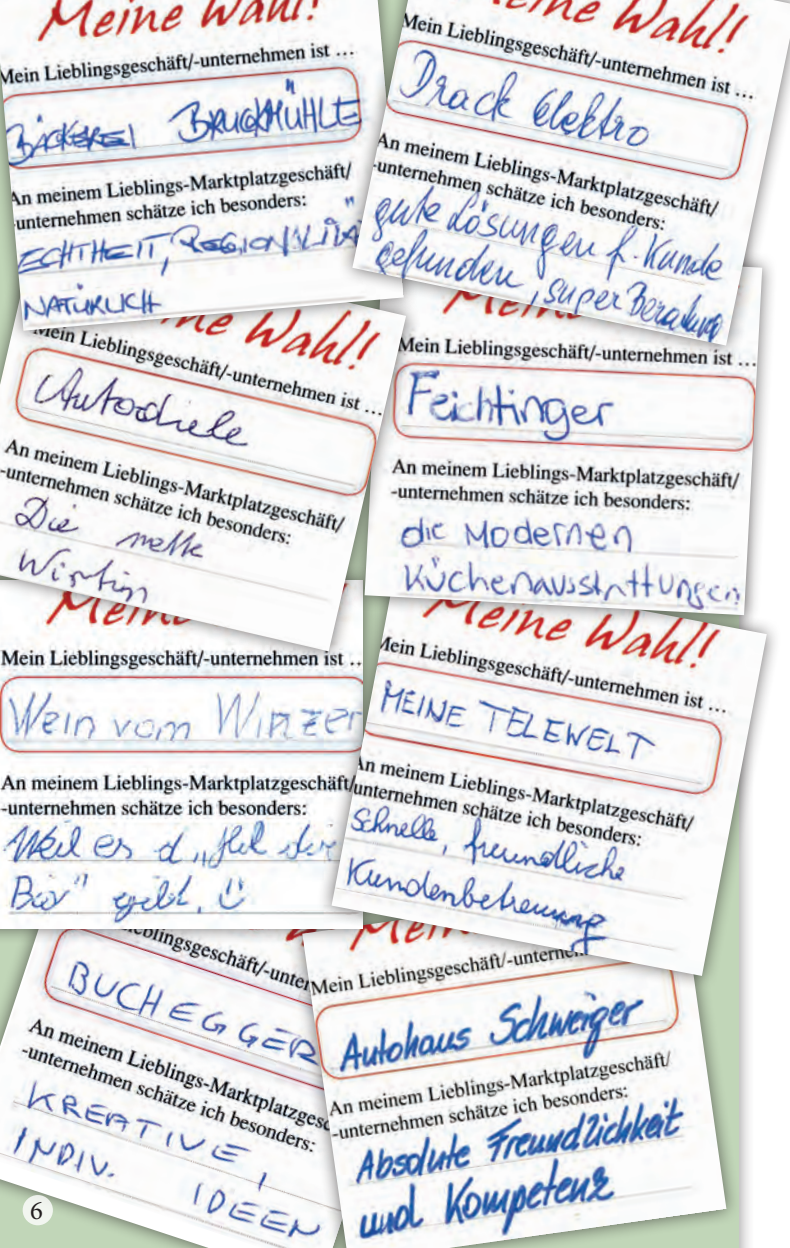 Meine Wahl!
Mein Lieblingsgeschäft/-unternehmen ist …
BÄCKEREI BRUCKMÜHLE
An meinem Lieblings-Marktplatzgeschäft/
-unternehmen schätze ich besonders:
ECHTHEIT, REGIONALITÄT
NATÜRLICH
eine Wahl!
Mein Lieblingsgeschäft/-unternehmen ist …
Drack Elektro
An meinem Lieblings-Marktplatzgeschäft/
-unternehmen schätze ich besonders:
gute Lösungen f. Kunde
gefunden, super Beratung
ine Wahl!
Mein Lieblingsgeschäft/-unternehmen ist …
Autodiele
An meinem Lieblings-Marktplatzgeschäft/
-unternehmen schätze ich besonders:
Die nette
Wirtin
Meine
Mein Lieblingsgeschäft/-unternehmen ist …
Feichtinger
An meinem Lieblings-Marktplatzgeschäft/
-unternehmen schätze ich besonders:
die Modernen
Küchenausstattungen
Meine
Mein Lieblingsgeschäft/-unternehmen ist …
Wein vom Winzer
An meinem Lieblings-Marktplatzgeschäft/
-unternehmen schätze ich besonders:
Weil es d
gibt.
Meine Wahl!
Mein Lieblingsgeschäft/-unternehmen ist …
MEINE TELEWELT
An meinem Lieblings-Marktplatzgeschäft/
unternehmen schätze ich besonders:
Schnelle, freundliche
Kundenbetreuung
eblingsgeschäft/-unter
BUCHEGGER
An meinem Lieblings-Marktplatzgesc
-unternehmen schätze ich besonders:
KREATIVE,
INDIV. IDEEN
Mein
Mein Lieblingsgeschäft/-unterneh
Autohaus Schweiger
An meinem Lieblings-Marktplatzgeschäft/
-unternehmen schätze ich besonders:
Absolute Freundlichkeit
und Kompetenz
6